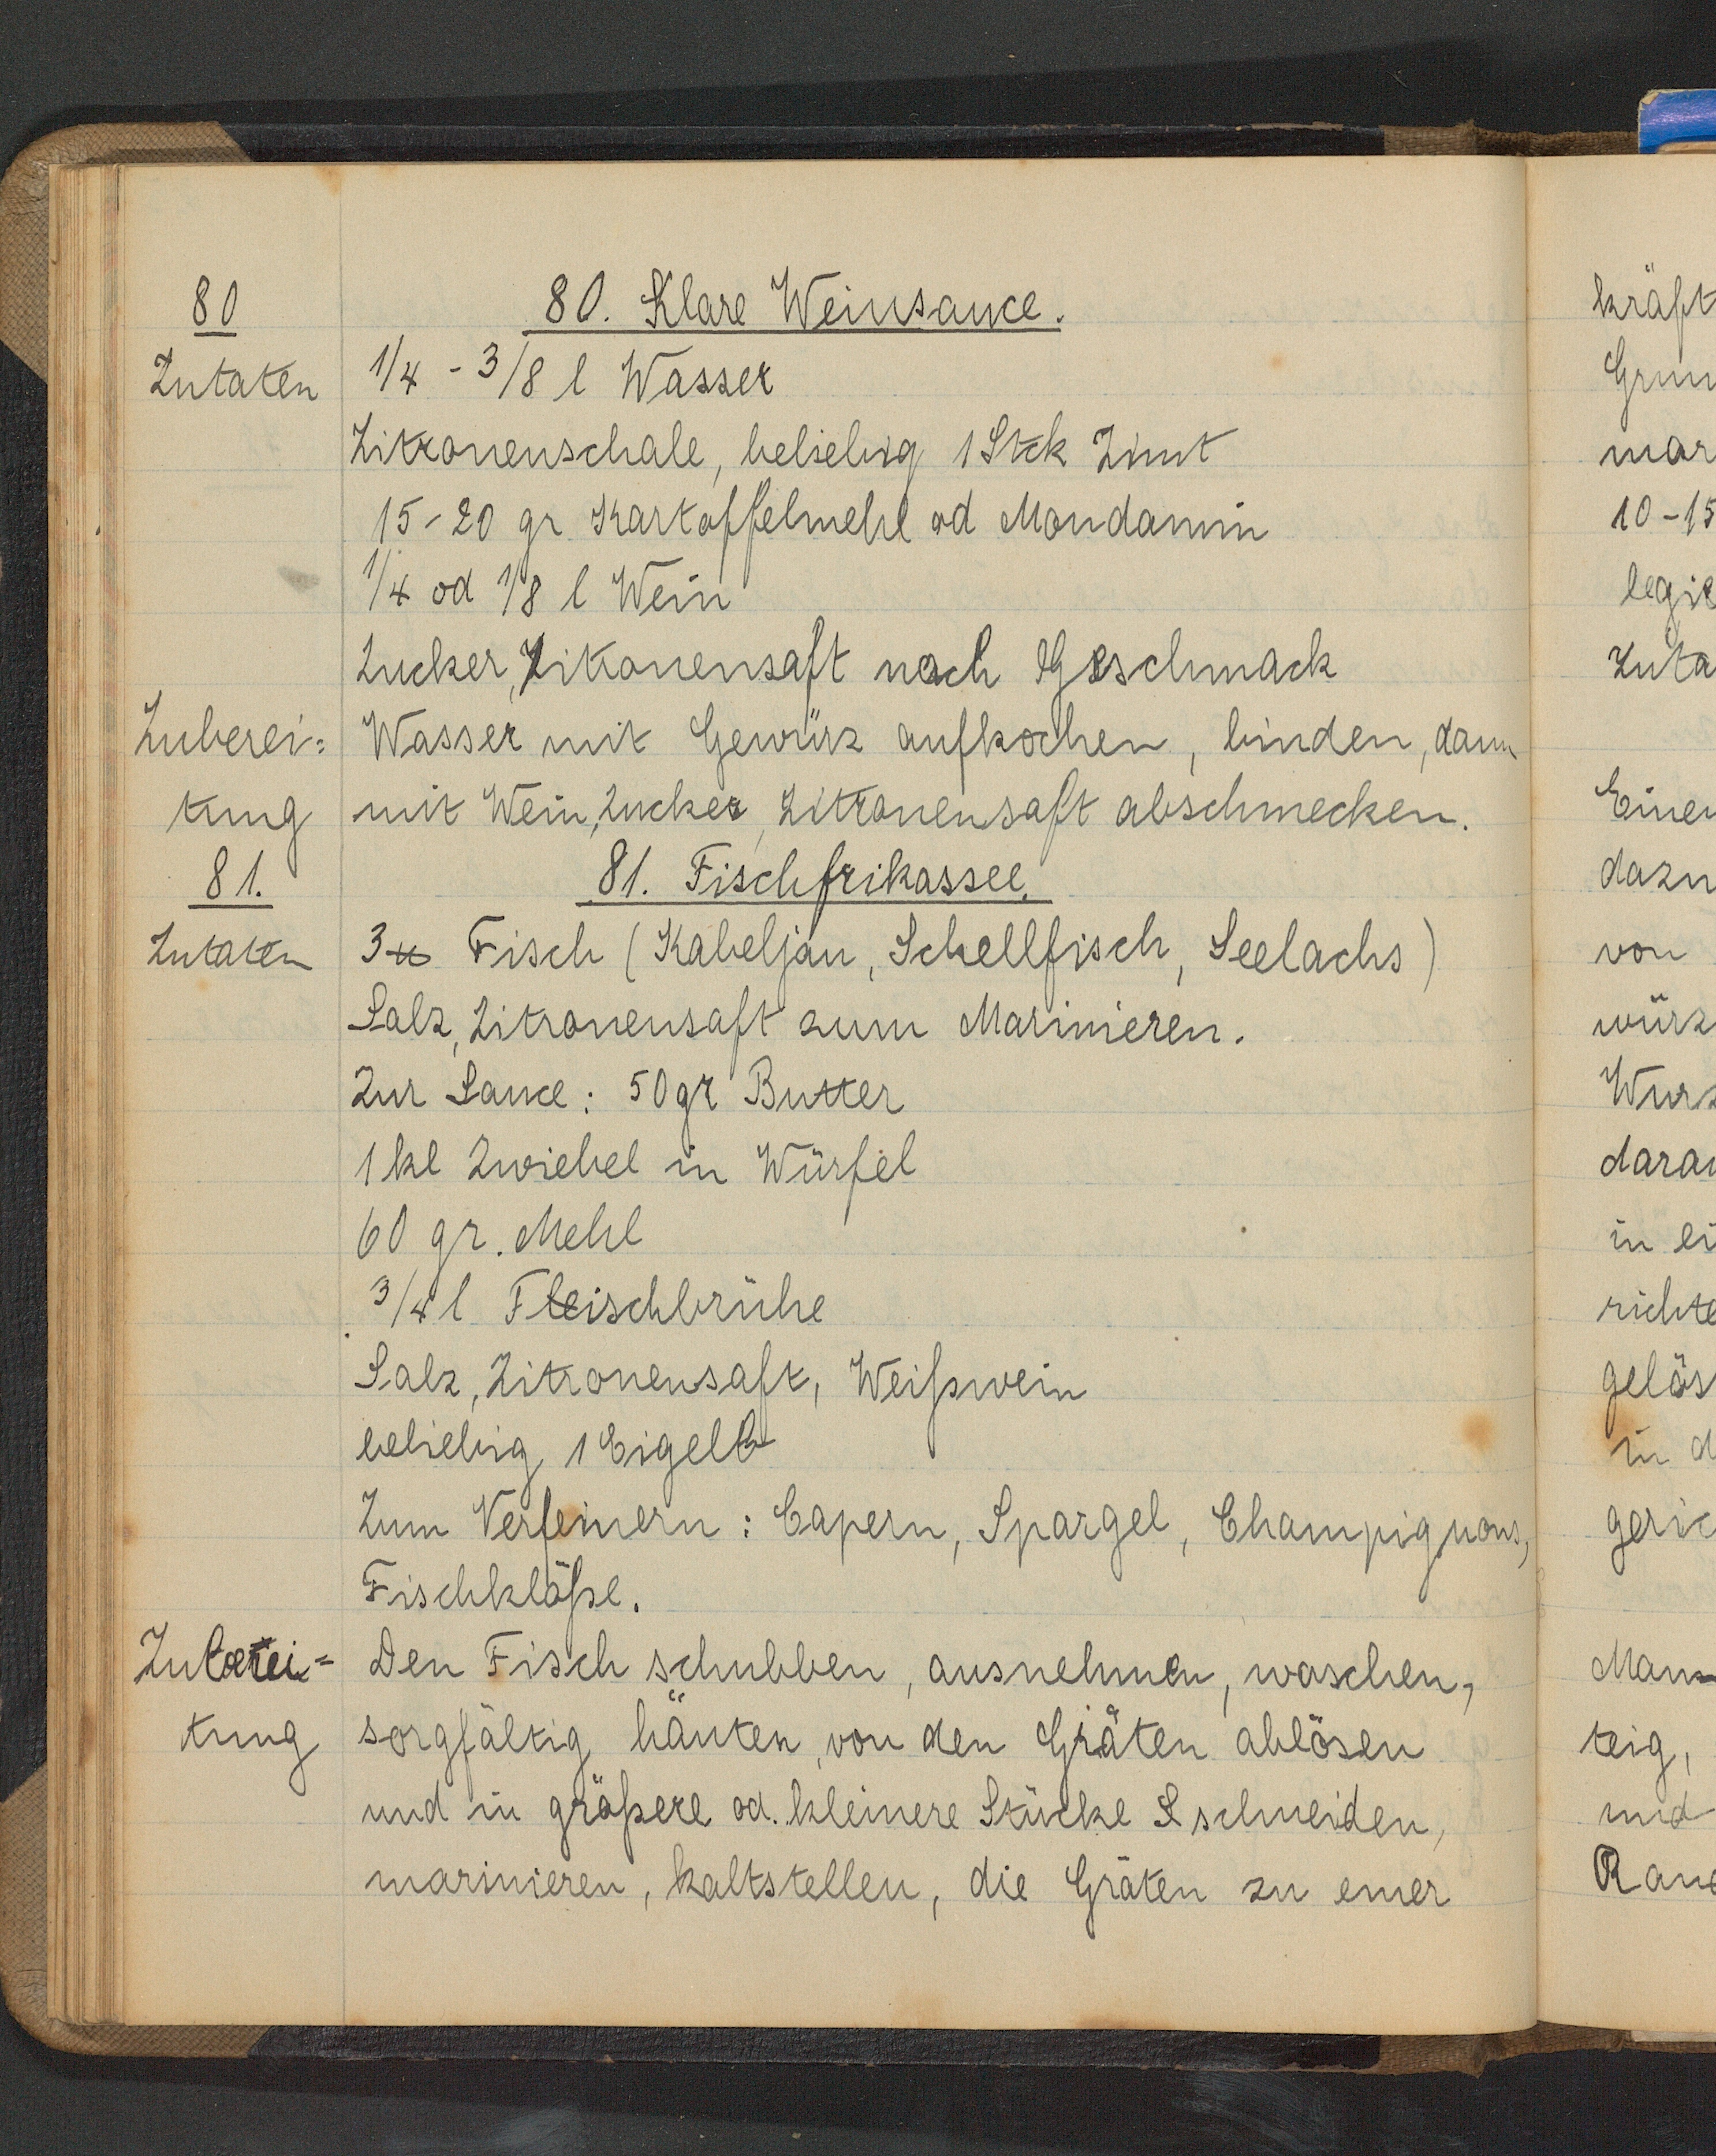 80
80. Klare Weinsauce.
Zutaten
1/4 - 3/8 l Wasser
Zitronenschale, beliebig 1 Stck Zimt
15-20 gr Kartoffelmehl od Mondamin
1/4 od 1/8 l Wein
Zucker, Zikonensaft nach Geschmack
Zuberei= Wasser mit Gewürz aufkochen, binden, dann
tung mit Wein, Zucker, Zitronensaft abschmecken.
81. 81. Fischfrikassee.
Zutaten 3 ℔ Fisch (Kabeljau, Schellfisch, Seelachs)
Salz, Zitronensaft zum Marinieren.
Zur Sauce: 50gr Butter
1 kl Zwiebel in Würfel
60 gr. Mehl
3/4 l Fleischbrühe
Salz, Zitronensaft, Weißwein
beliebig 1 Eigelb
Zum Verfeinern: Capern, Spargel, Champignons,
Fischklöße.
Zuberei= Den Fisch schubben, ausnehmen, waschen,
tung sorgfältig häuten, von den Gräten ablösen
und in größere od. kleinere Stücke schneiden,
marinieren, kaltstellen, die Gräten zu einer
kräft
Grun
mar
10-15
legie
Zuta
Einen
dazu
von
würz
Wurz
darau
in ei
richte
gelös
in d
geric
Man
teig,
und
Rand